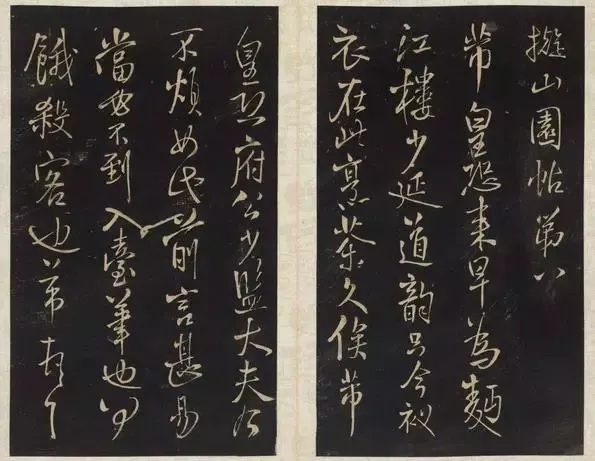 擬山園帖第八
芾皇恐来早為麵
江樓少延道韻只今被
衣在此烹茶久候芾
皇恐府公少監大夫
不煩如此前言甚易
當世不到入臺筆也
餓殺客也芾頓首